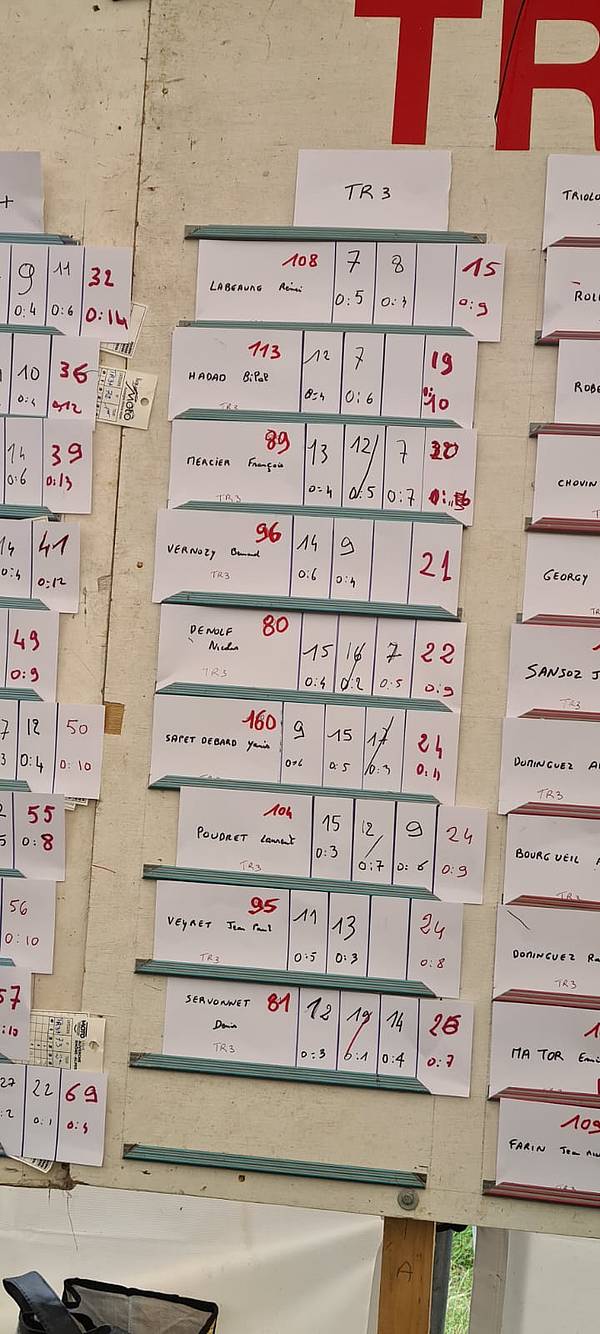 TR
TR 3
108 7 8 15
LABEAUNE Rémi 0:5 0:3 0:9
113 12 7 19
HADAD Bilal 0:4 0:6 0:10
TR3
89 13 12 7
MERCIER François 0:4 0:5 0:7
TR3
96 14 9 21
VERNOZY Bernard 0:6 0:4
TR3
DENOLF 80 15 16 7 22
Nicolas 0:4 0:2 0:5 0:9
TR3
160 9 15 17 24
SAPET DEBARD Yanis 0:6 0:5 0:3 0:11
104 15 12 9 24
POUDRET Laurent 0:3 0:7 0:6 0:9
TR3
95 11 13 24
VEYRET Jean Paul 0:5 0:3 0:8
TR3
SERVONNET 81 12 19 14 26
Denis 0:3 0:1 0:4 0:7
TR3
+
9 11 32
0:4 0:6 0:14
10 36
0:4 0:12
14 39
0:6 0:13
14 41
0:4 0:12
49
0:9
7 12 50
3 0:4 0:10
55
5 0:8
56
0:10
57
0:10
27 22 69
:2 0:1 0:4
TRIOLO
ROLL
ROBE
CHOVIN
GEORGY
TR3
SANSOZ J
TR3
DOMINGUEZ A
TR3
BOURGUEIL
TR3
DOMINGUEZ Ra
TR3
MATOR Emi
109
FARIN Jean
A